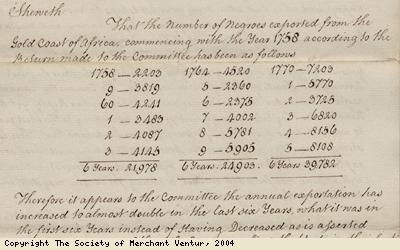 Sheweth
That the Number of Negroes exported from the
Gold Coast of Africa, commencing with the Year 1758 according to the
Return made to the Committee has been as follows
1758 — 2203 1764 — 4520 1770 — 7203
9 — 3819 5 — 2360 1 — 5770
60 — 4241 6 — 2375 2 — 3725
1 — 3483 7 — 4002 3 — 6820
2 — 4087 8 — 5781 4 — 8156
3 — 4145 9 — 5905 5 — 8108
6 Years. 21,978 6 Years. 24,903. 6 Years. 39,782
Therefore it appears to the Committee the annual exportation has
increased to almost double in the last six Years, what it was in
the first six Years instead of Having Decreased as is asserted
Copyright The Society of Merchant Ventur, 2004